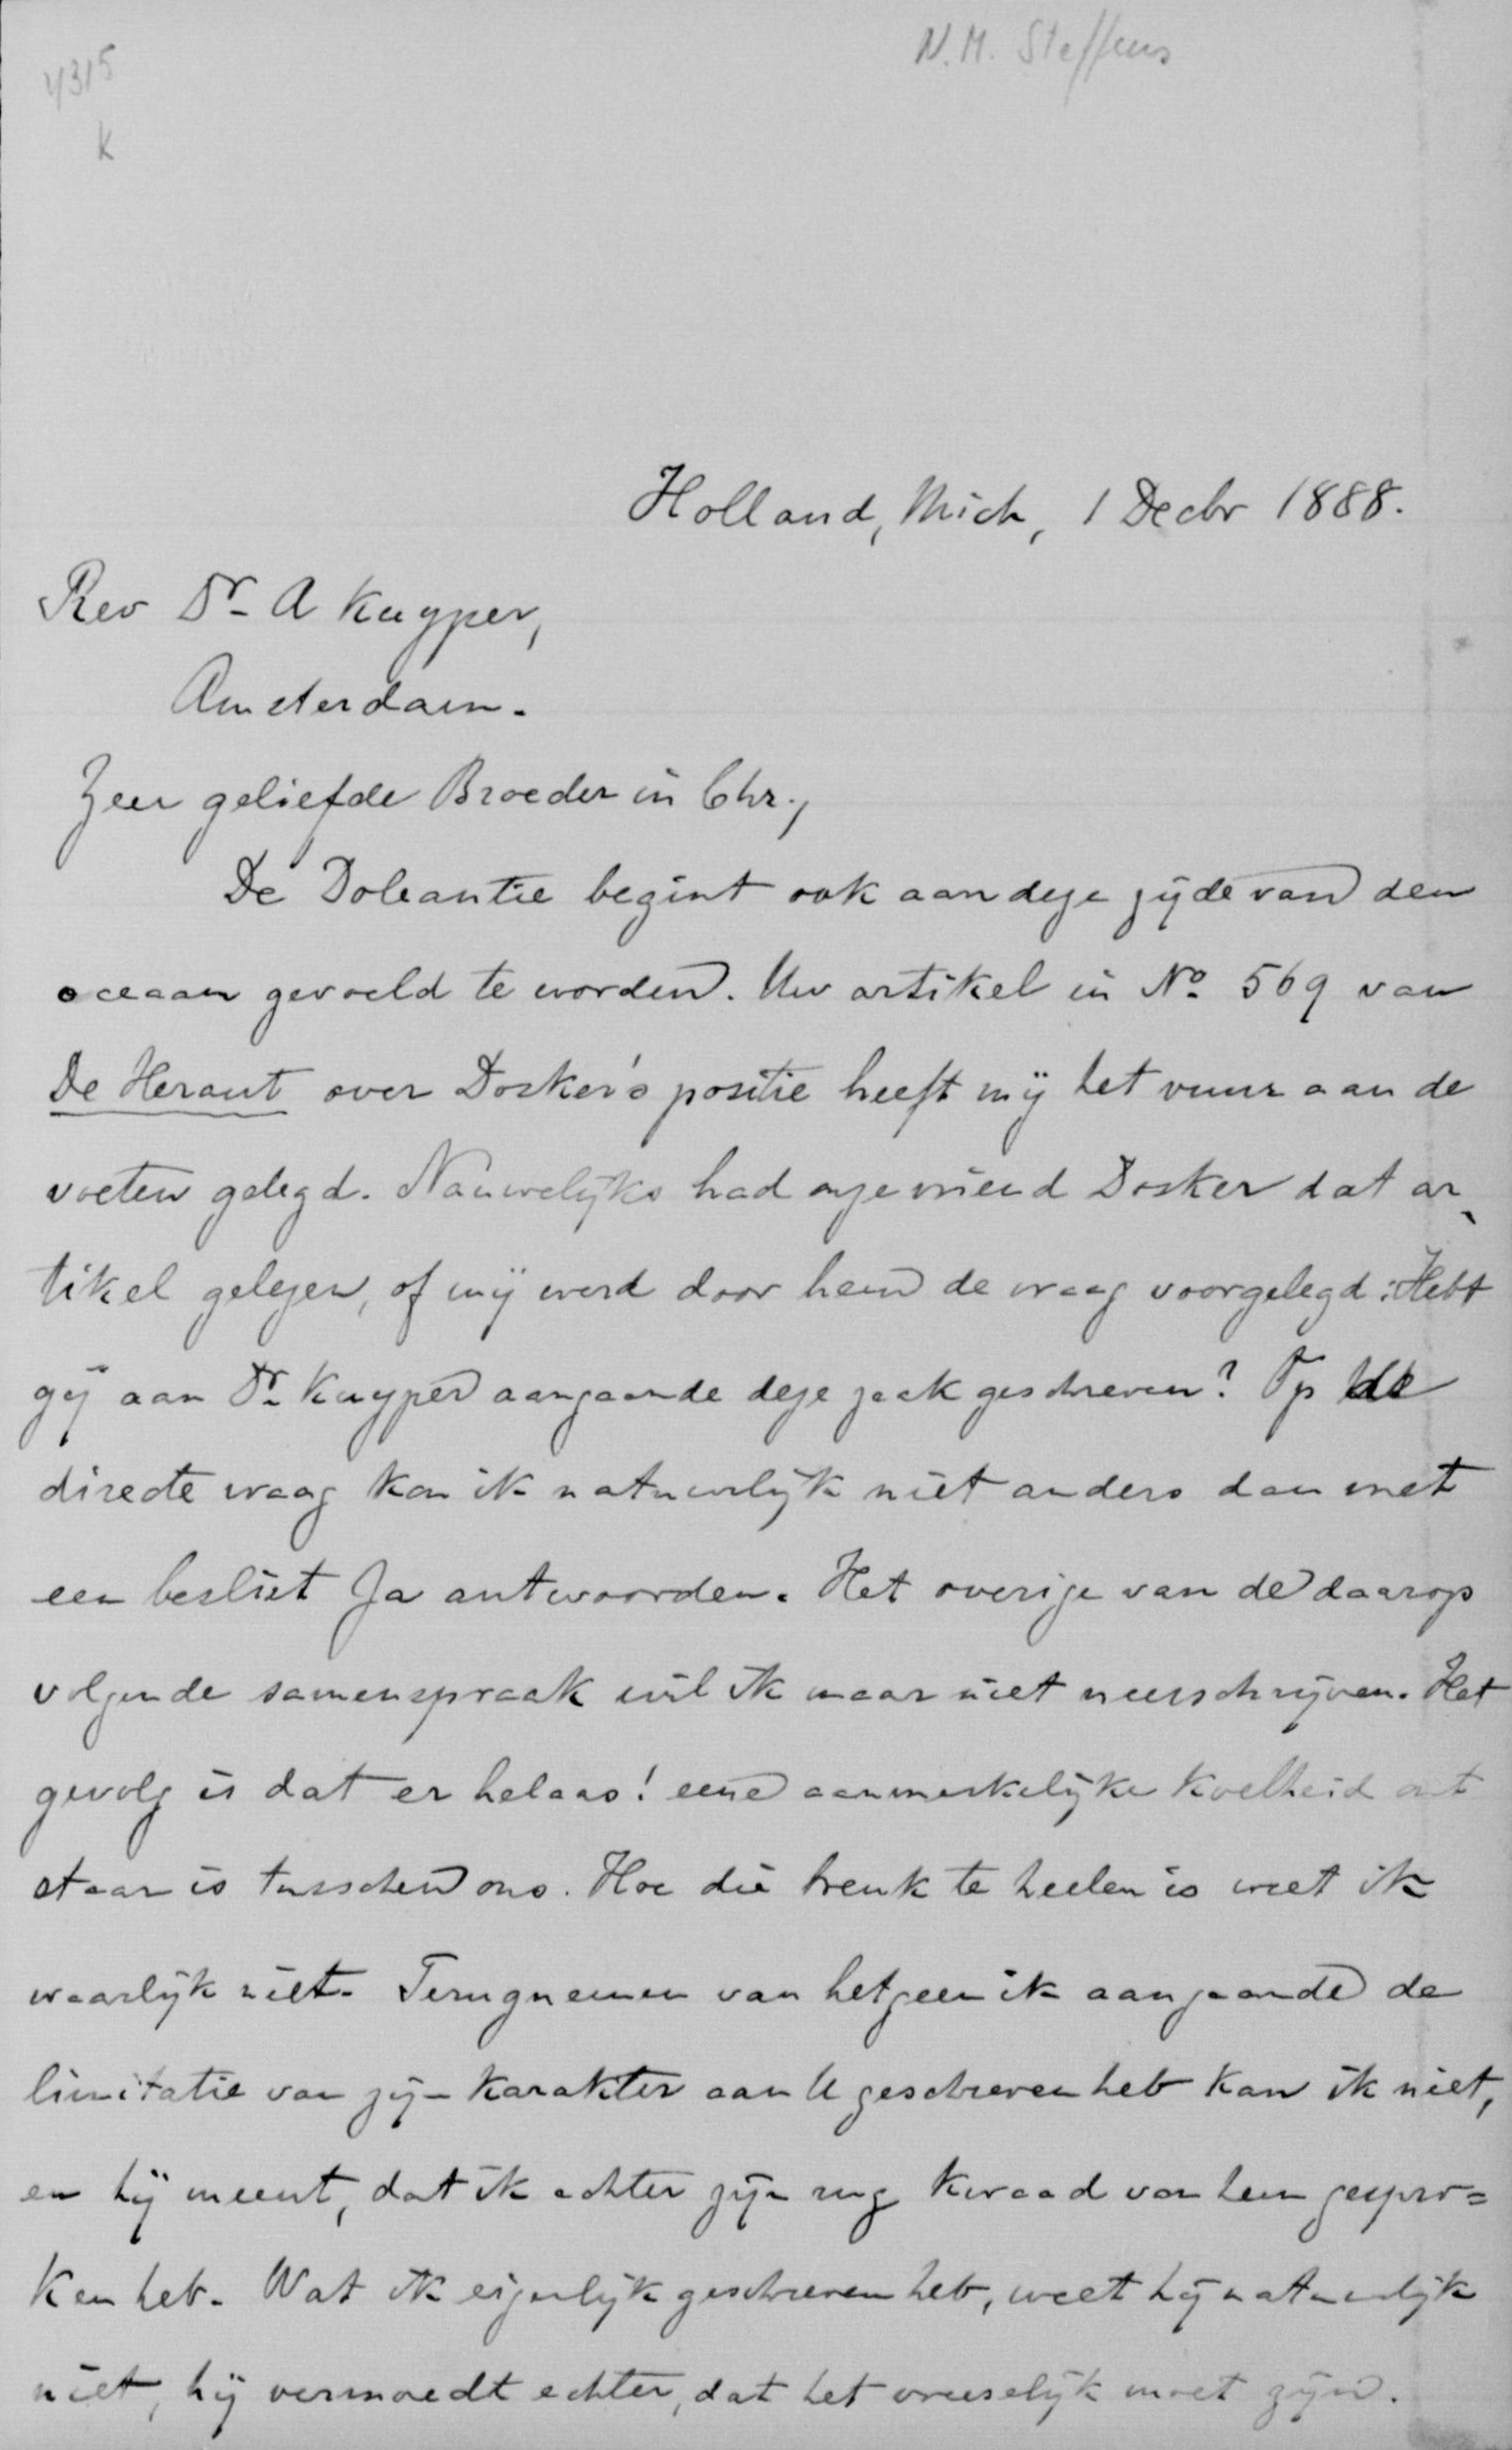 4315
K
N. M. Steffens
Holland, Mich, 1 Decbr 1888.
Rev Dr. A Kuyper,
Amsterdam.
Zeer geliefde Broeder in Chr.,
De Doleantie begint ook aan deze zijde van den
oceaan gevoeld te worden. Uw artikel in No. 569 van
De Heraut over Dosker's positie heeft mij het vuur aan de
voeten gelegd. Nauwelijks had onze vriend Dosker dat ar-
tikel gelezen, of mij werd door hem de vraag voorgelegd: Hebt
gij aan Dr. Kuyper aangaande deze zaak geschreven? Op de
directe vraag kon ik natuurlijk niet anders dan met
een beslist Ja antwoorden. Het overige van de daarop
volgende samenspraak wil ik maar niet neerschrijven. Het
gevolg is dat er helaas! eene aanmerkelijke koelheid ont
staan is tusschen ons. Hoe die breuk te heelen is weet ik
waarlijk niet. Terugnemen van hetgeen ik aangaande de
limitatie van zijn karakter aan U geschreven heb kan ik niet,
en hij meent, dat ik achter zijn rug kwaad van hem gespro=
ken heb. Wat ik eigenlijk geschreven heb, weet hij natuurlijk
niet, hij vermoedt echter, dat het vreeselijk moet zijn.